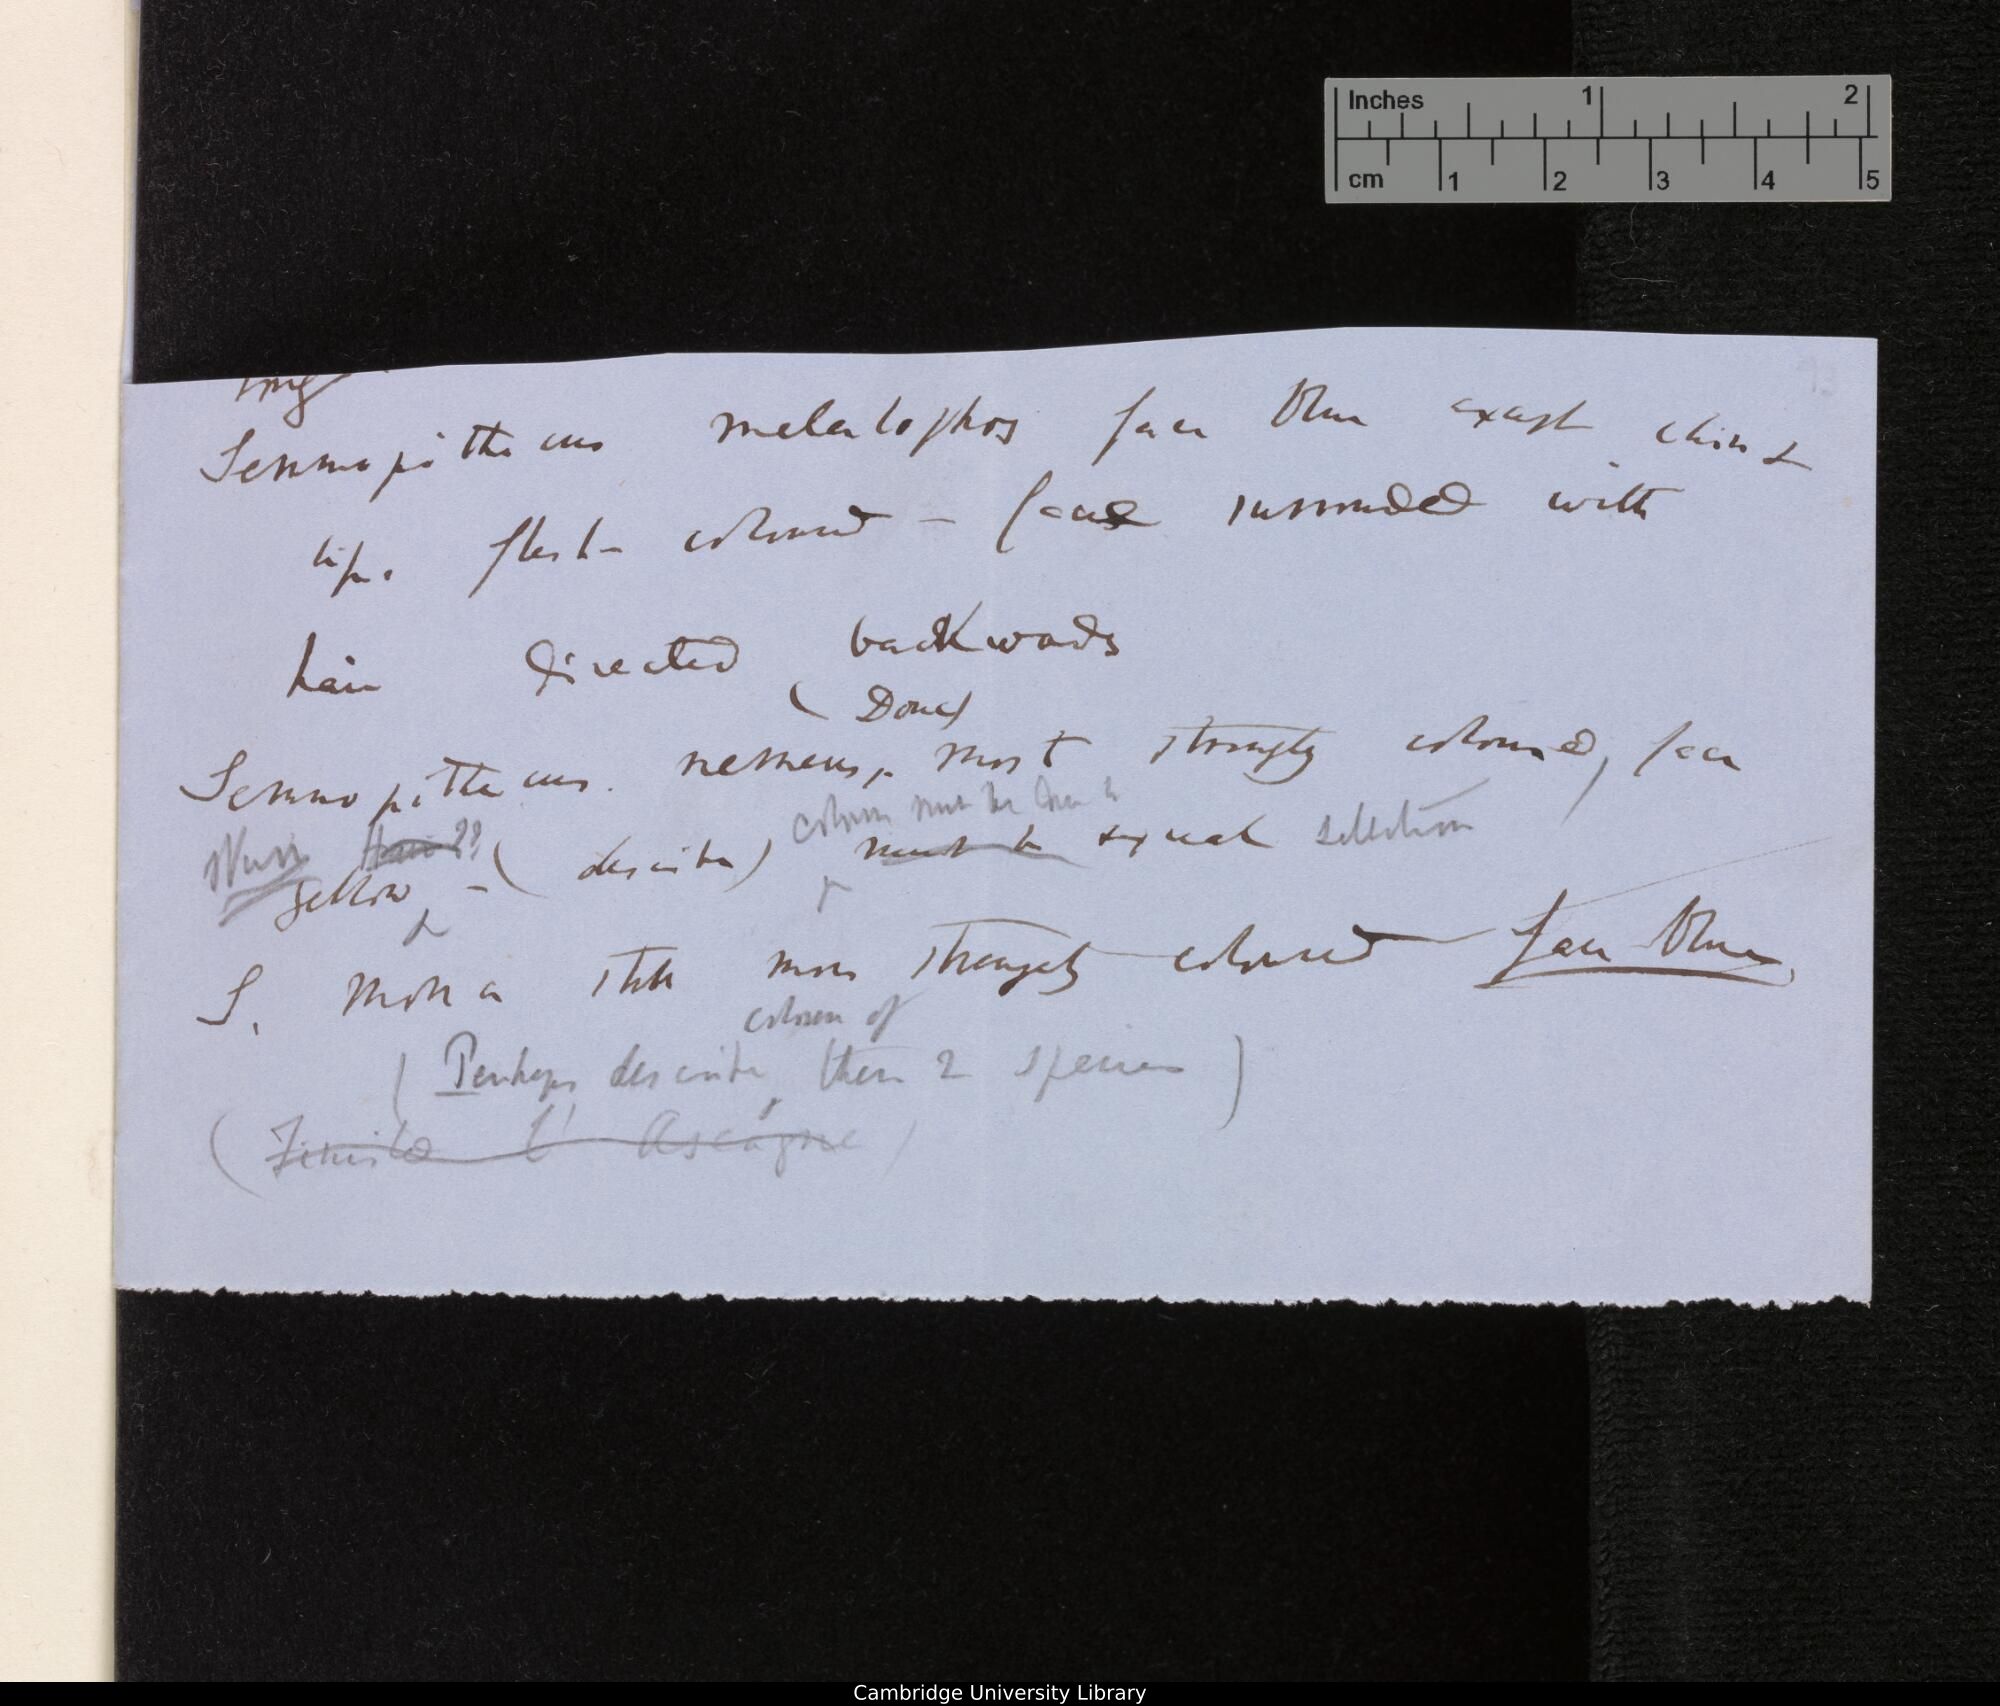 Inches 1 2
cm 1 2 3 4 5
Semnopithecus melalophos face blue except chin &
lips flesh-coloured — face surrounded with
hair directed backwards
(Done)
Semnopithecus. nemæus, most strongly coloured, face
colour must be due to
yellow — (describe) must be sexual selection
&
S. mona still more strongly coloured face blue
colours of
(Perhaps describe these 2 species)
(Female l' Ascagne)
Cambridge University Library